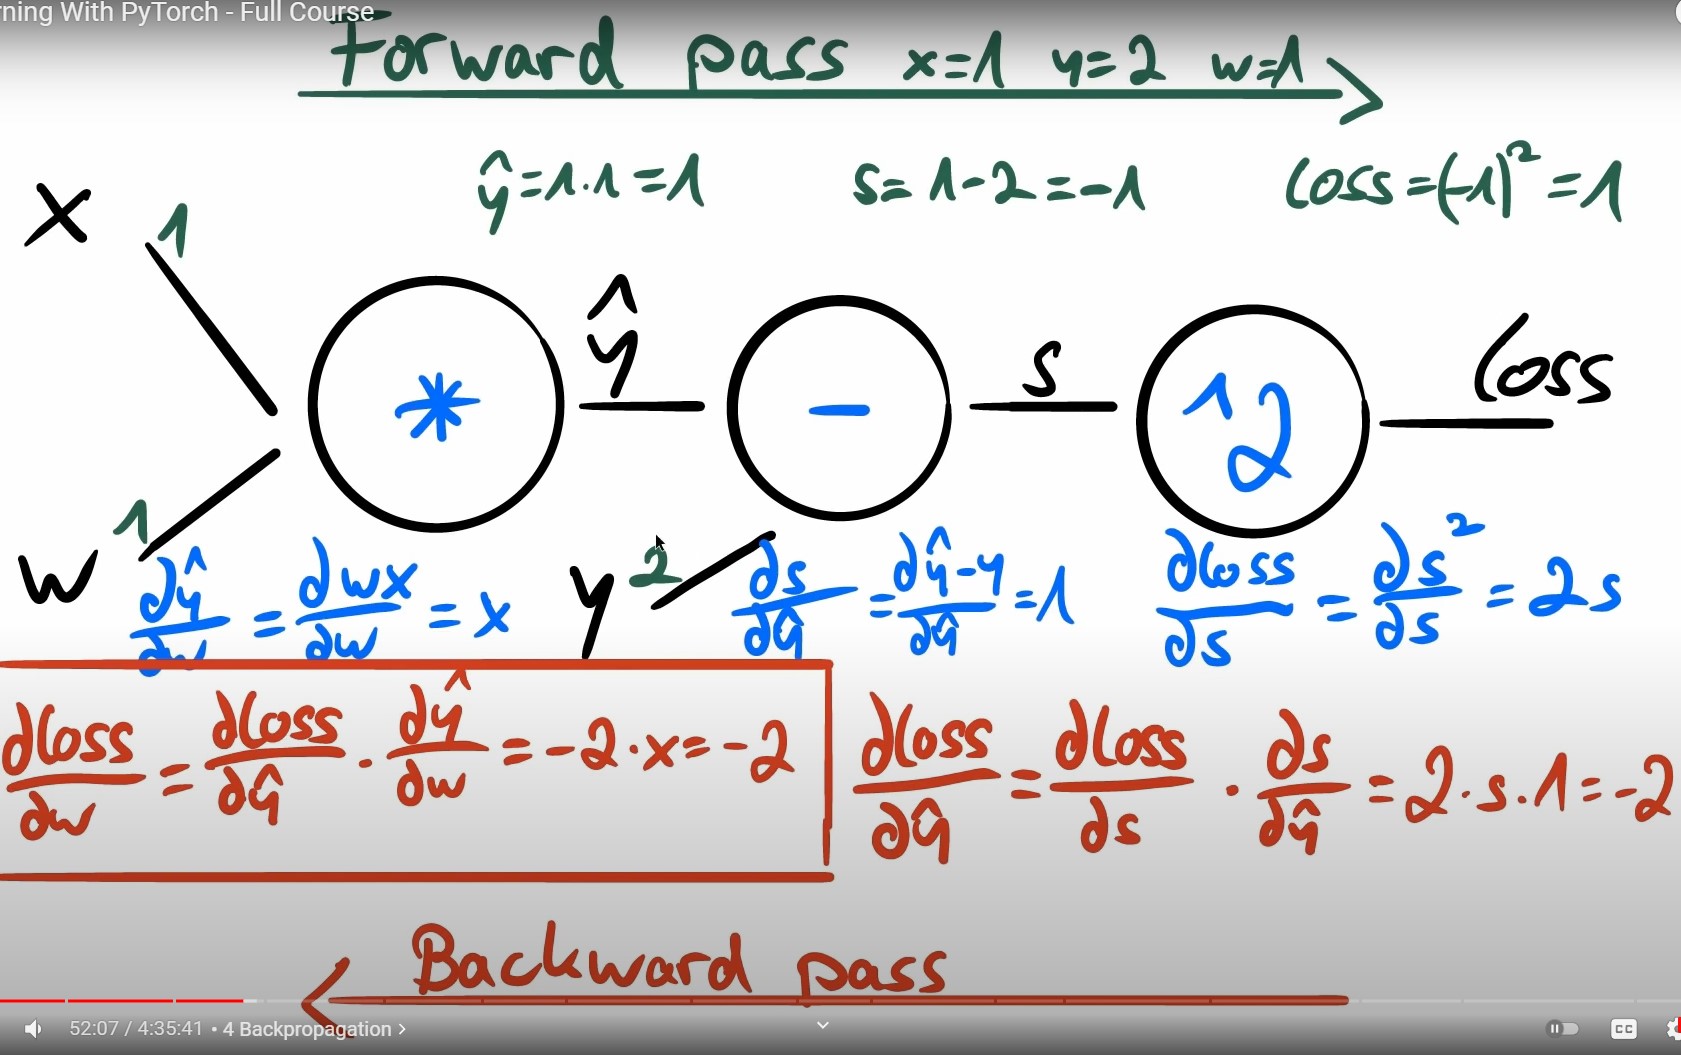 rning With PyTorch - Full Course
Forward pass x=1 y=2 w=1
ŷ=1·1=1 s=1-2=-1 loss=(-1)²=1
x 1
ŷ s loss
* - ^2
1
w y 2
∂ŷ/∂w = ∂wx/∂w = x ∂s/∂ŷ = ∂ŷ-y/∂ŷ = 1 ∂loss/∂s = ∂s²/∂s = 2s
∂loss/∂w = ∂loss/∂ŷ · ∂ŷ/∂w = -2·x = -2 ∂loss/∂ŷ = ∂loss/∂s · ∂s/∂ŷ = 2·s·1 = -2
Backward pass
52:07 / 4:35:41 • 4 Backpropagation >
CC